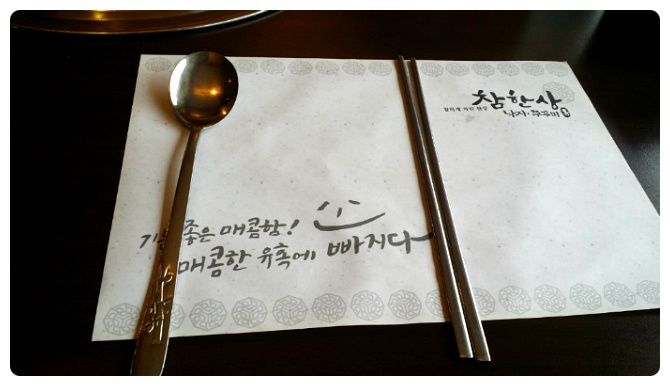 참한상
낙지·쭈꾸미
좋은 매콤함!
매콤한 유혹에 빠지다